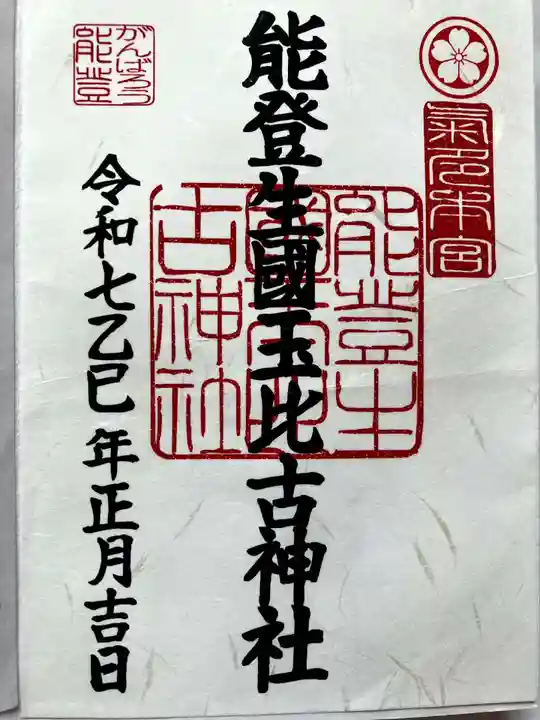 氣多本宮
能登生國玉比古神社
能登生國玉比古神社
令和七乙巳年正月吉日
がんばろう
能登